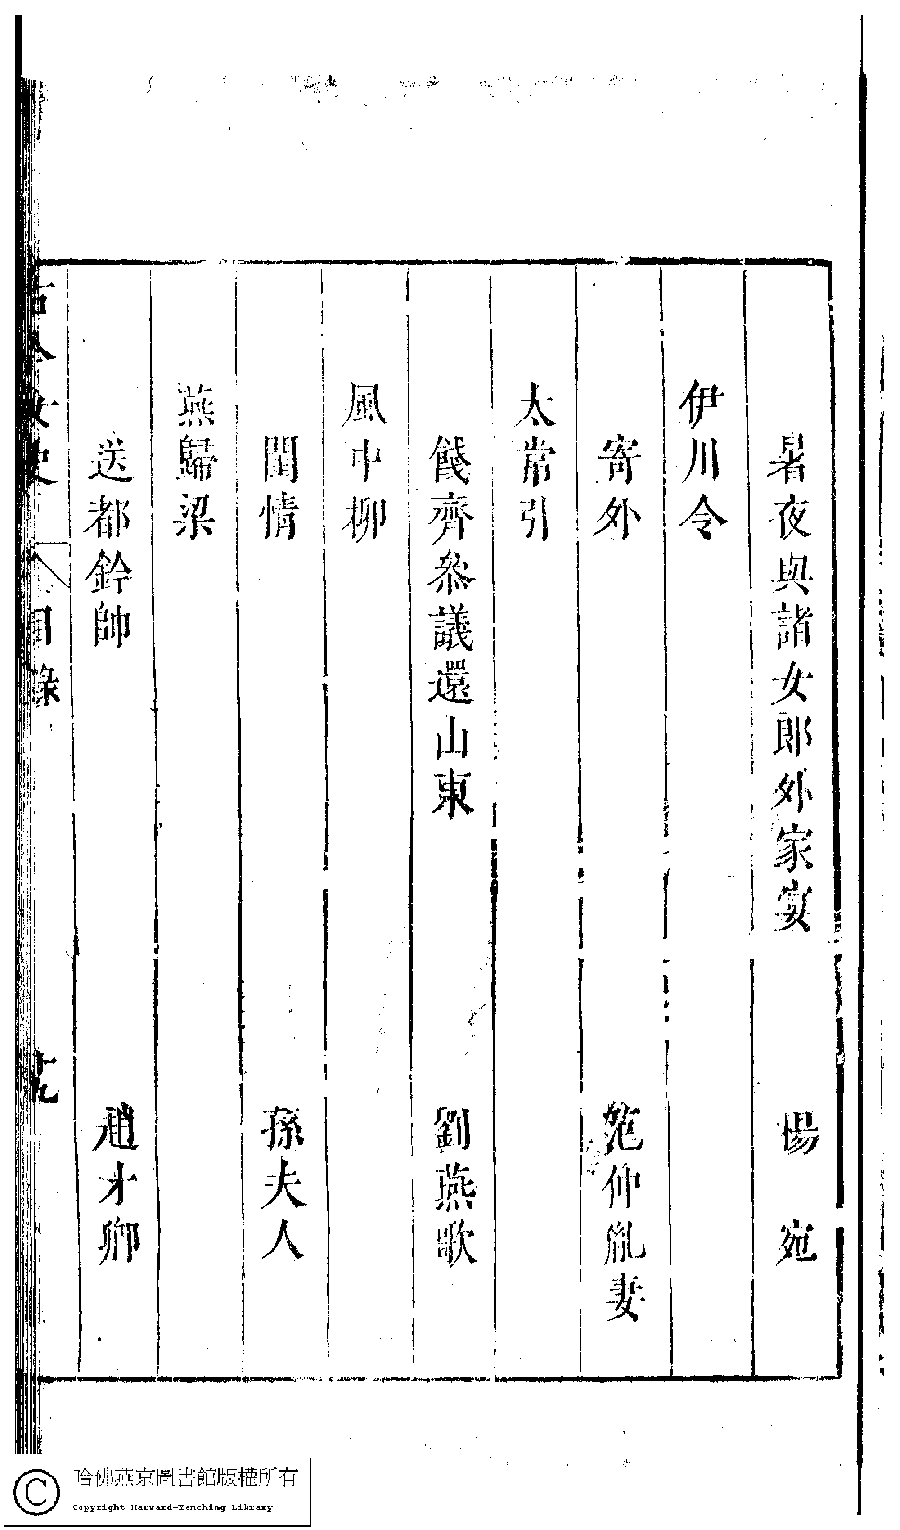 暑夜與諸女郎外家宴 楊宛
伊川令
寄外 范仲胤妻
太常引
餞齊參議還山東 劉燕歌
風中柳
閨情 孫夫人
燕歸梁
送都鈐帥 趙才卿
古今女史 目錄 十九
哈佛燕京圖書館版權所有
Copyright Harvard-Yenching Library